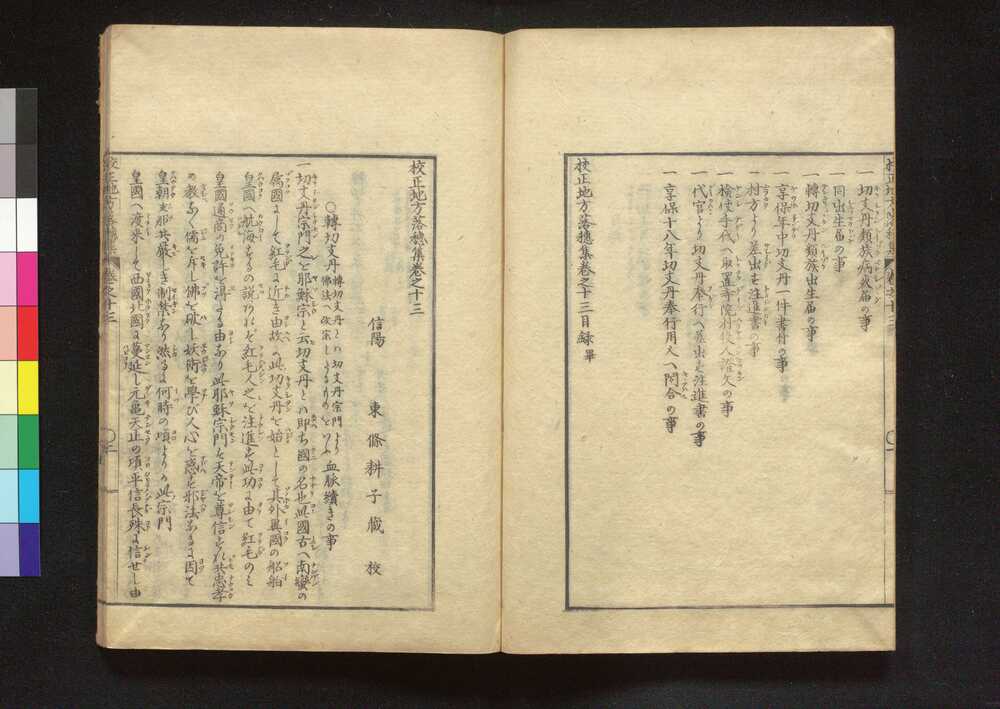 一 切支丹類族病死届の事
一 同出生届の事
一 轉切支丹類族出生届の事
一 享保年中切支丹一件書付の事
一 村方より差出す注進書の事
一 檢使手代へ取置寺院村役人證文の事
一 代官より切支丹奉行へ差出す注進書の事
一 享保十八年切支丹奉行用人へ問合の事
校正地方落穗集卷之十三目録 畢
校正地方落穗集卷之十三
信陽 東條耕子藏 校
○轉切支丹 轉切支丹とハ切支丹宗門より佛法へ改宗しよるものをいふ 血脉續きの事
一切支丹宗門之を耶蘇宗と云切支丹とハ即ち國の名也此國古へ南蠻の
属國にして紅毛に近き由故に此切支丹を始として其外異國の船舶
皇國へ航海するの説あれバ紅毛人之を注進す此功に由て紅毛のミ
皇國通商の免許を得る由なり此耶蘇宗門ハ天帝を尊信すれ共忠孝
の教なく儒を斥し佛を破し妖術を學び人心を惑す邪法なるに因て
皇朝支那共嚴しき制禁あり然るに何時の頃よりか此宗門
皇國へ渡来して西國北國に蔓延し元亀天正の頃平信長殊に信せし由